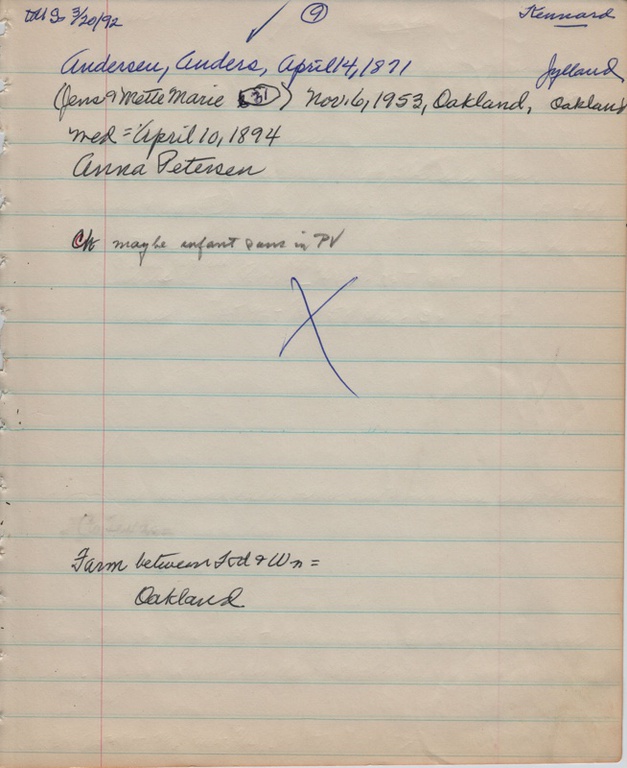 3/20/92 9 Kennard
Andersen, Anders, April 14, 1871 Jylland
(Jens & Mette Marie 31) Nov. 6, 1953, Oakland, Oakland
med = April 10, 1894
Anna Petersen
Ck maybe infant sons in PV
X
Farm between Fod & Wn =
Oakland